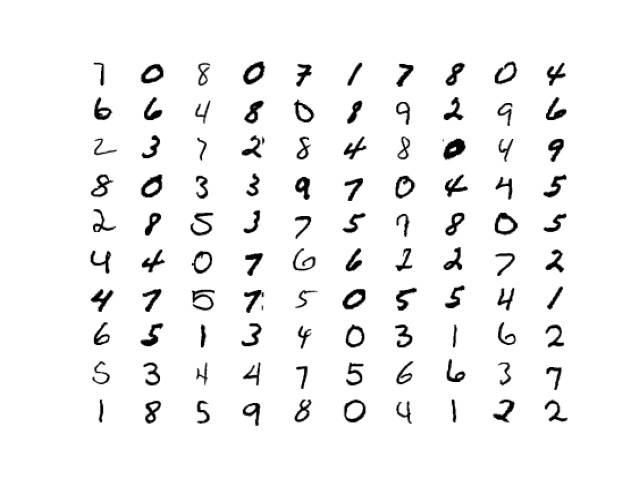 7 0 8 0 7 1 7 8 0 4
6 6 4 8 0 8 9 2 9 6
2 3 7 2 8 4 8 0 4 9
8 0 3 3 9 7 0 4 4 5
2 8 5 3 7 5 7 8 0 5
4 4 0 7 6 6 2 2 7 2
4 7 5 7 5 0 5 5 4 1
6 5 1 3 4 0 3 1 6 2
5 3 4 4 7 5 6 6 3 7
1 8 5 9 8 0 4 1 2 2